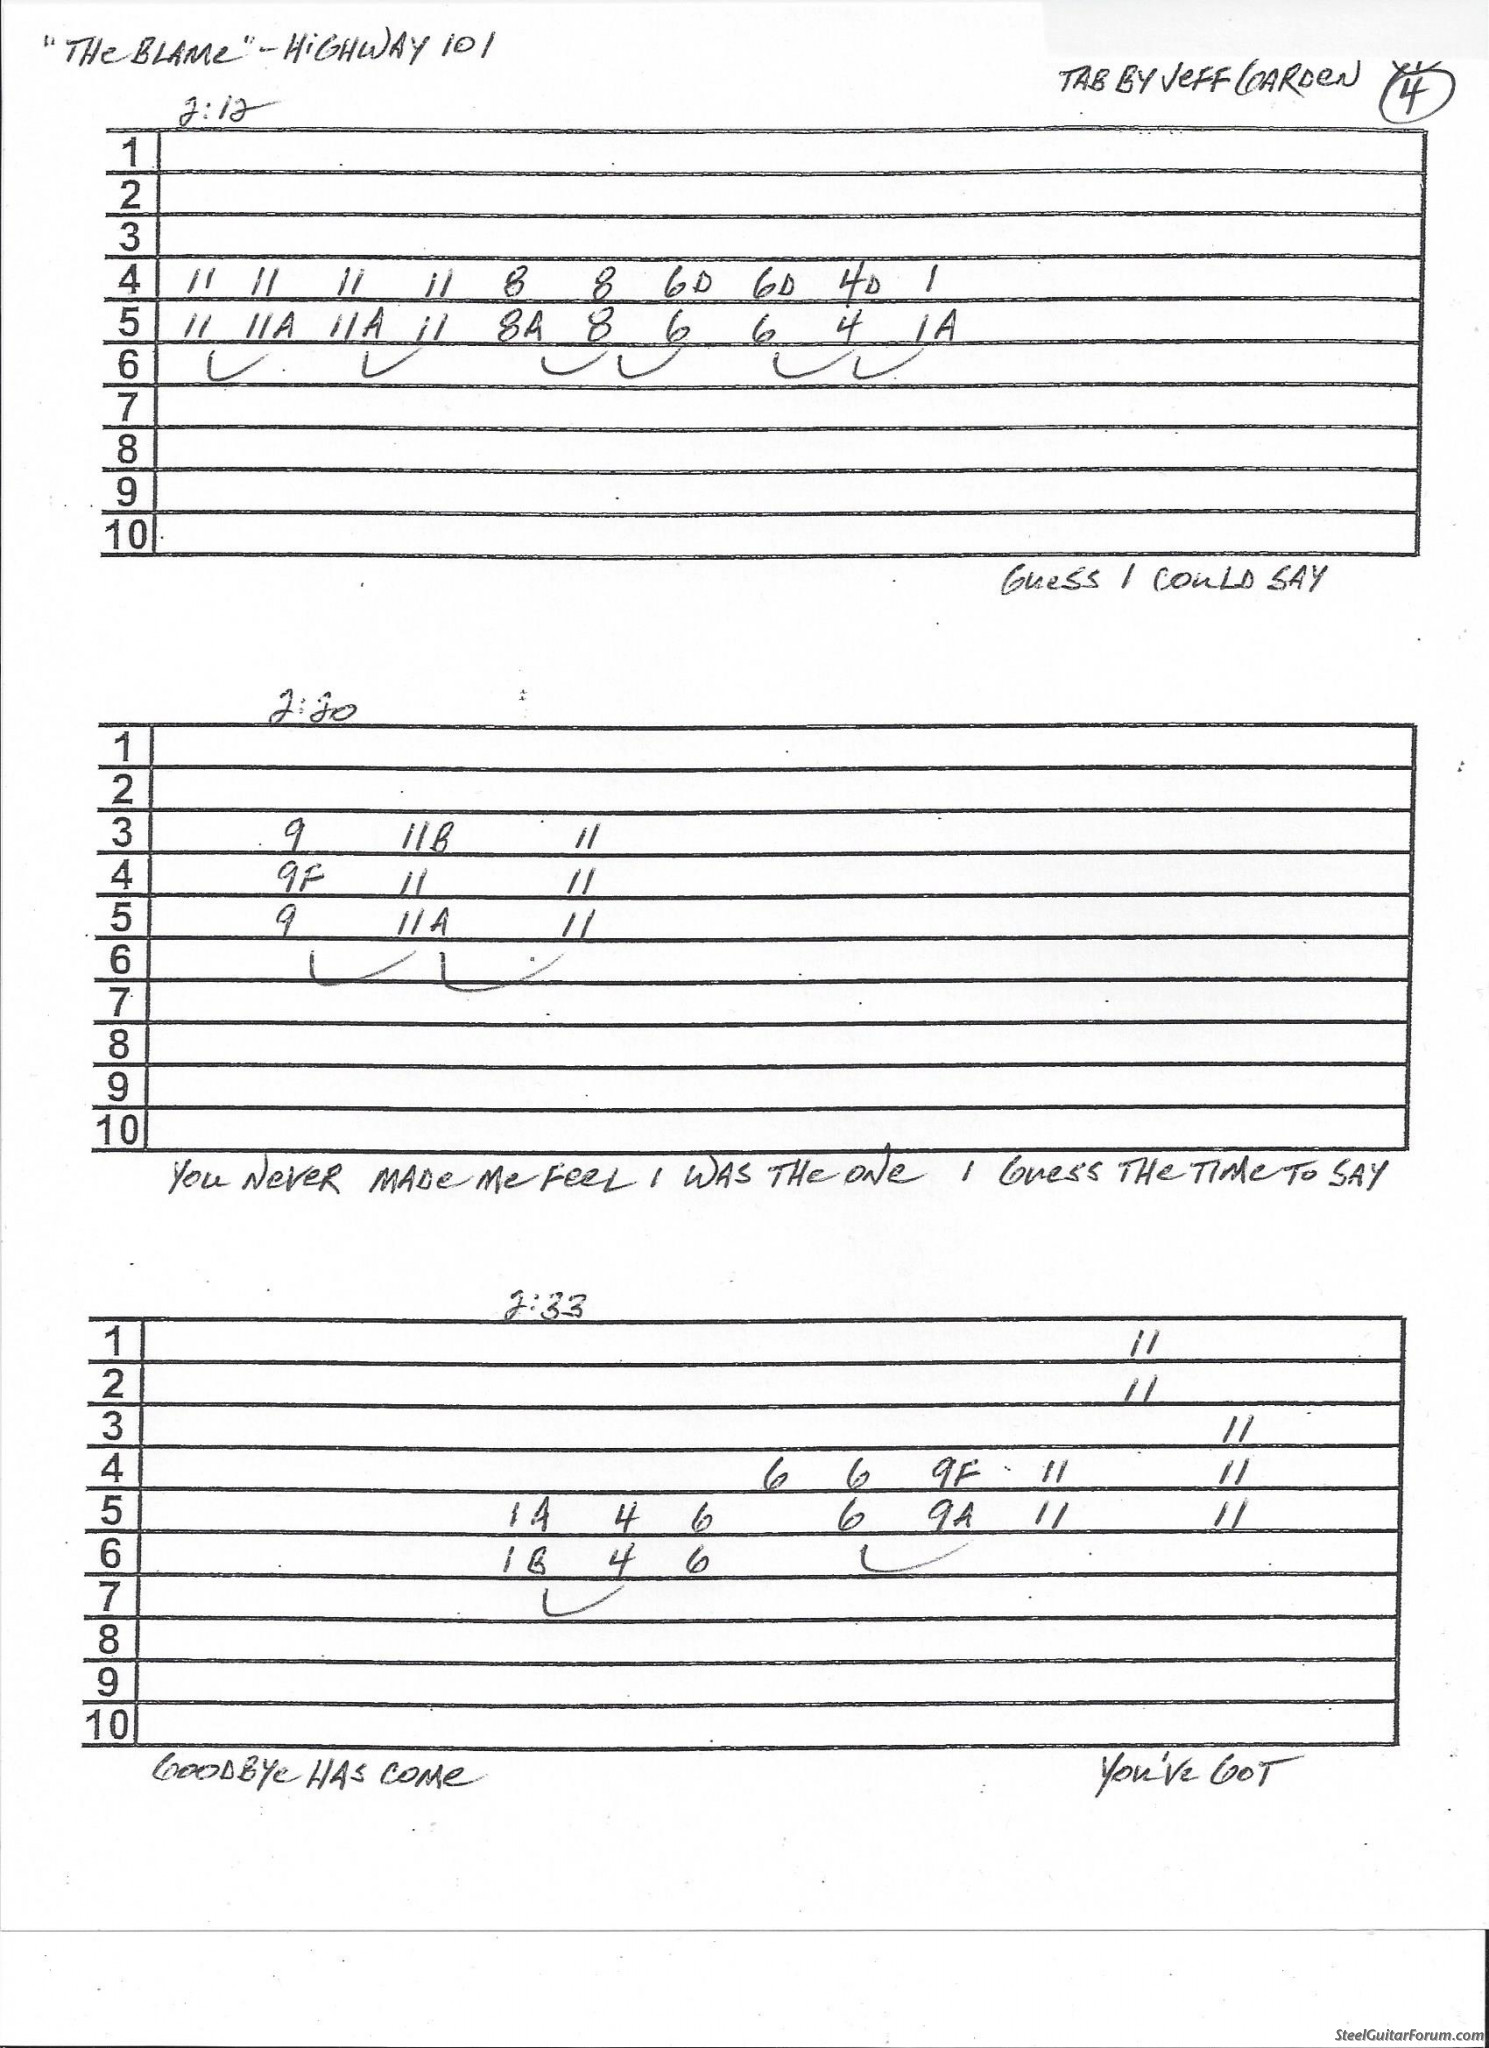 "THE BLAME" - HIGHWAY 101
TAB BY JEFF GARDEN 4
2:12
1
2
3
4 11 11 11 11 8 8 6D 6D 4D 1
5 11 11A 11A 11 8A 8 6 6 4 1A
6
7
8
9
10
GUESS I COULD SAY
2:20
1
2
3 9 11B 11
4 9F 11 11
5 9 11A 11
6
7
8
9
10
YOU NEVER MADE ME FEEL I WAS THE ONE I GUESS THE TIME TO SAY
2:33
1 11
2 11
3 11
4 6 6 9F 11 11
5 1A 4 6 6 9A 11 11
6 1B 4 6
7
8
9
10
GOODBYE HAS COME YOU'VE GOT
SteelGuitarForum.com